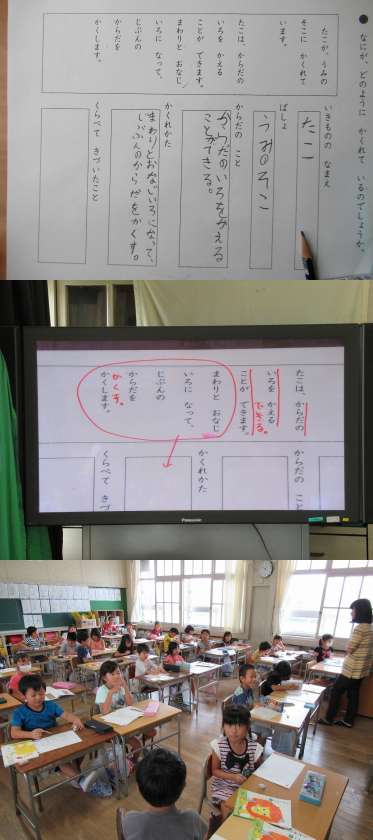 ● なにが、どのように かくれて いるのでしょうか。
たこが、うみの
そこに かくれて
います。
たこは、からだの
いろを かえる
ことが できます。
まわりと おなじ
いろに なって、
じぶんの
からだを
かくします。
いきものの なまえ
たこ
ばしょ
うみのそこ
からだの こと
からだのいろをかえる
ことができる。
かくれかた
まわりとおなじいろになって、
じぶんのからだをかくす。
くらべて きづいたこと
たこは、からだの
いろを かえる
ことが できます。
できる。
まわりと おなじ
いろに なって、
じぶんの
からだを
かくします。
かくす。
からだの こと
かくれかた
くらべて きづ
Panasonic